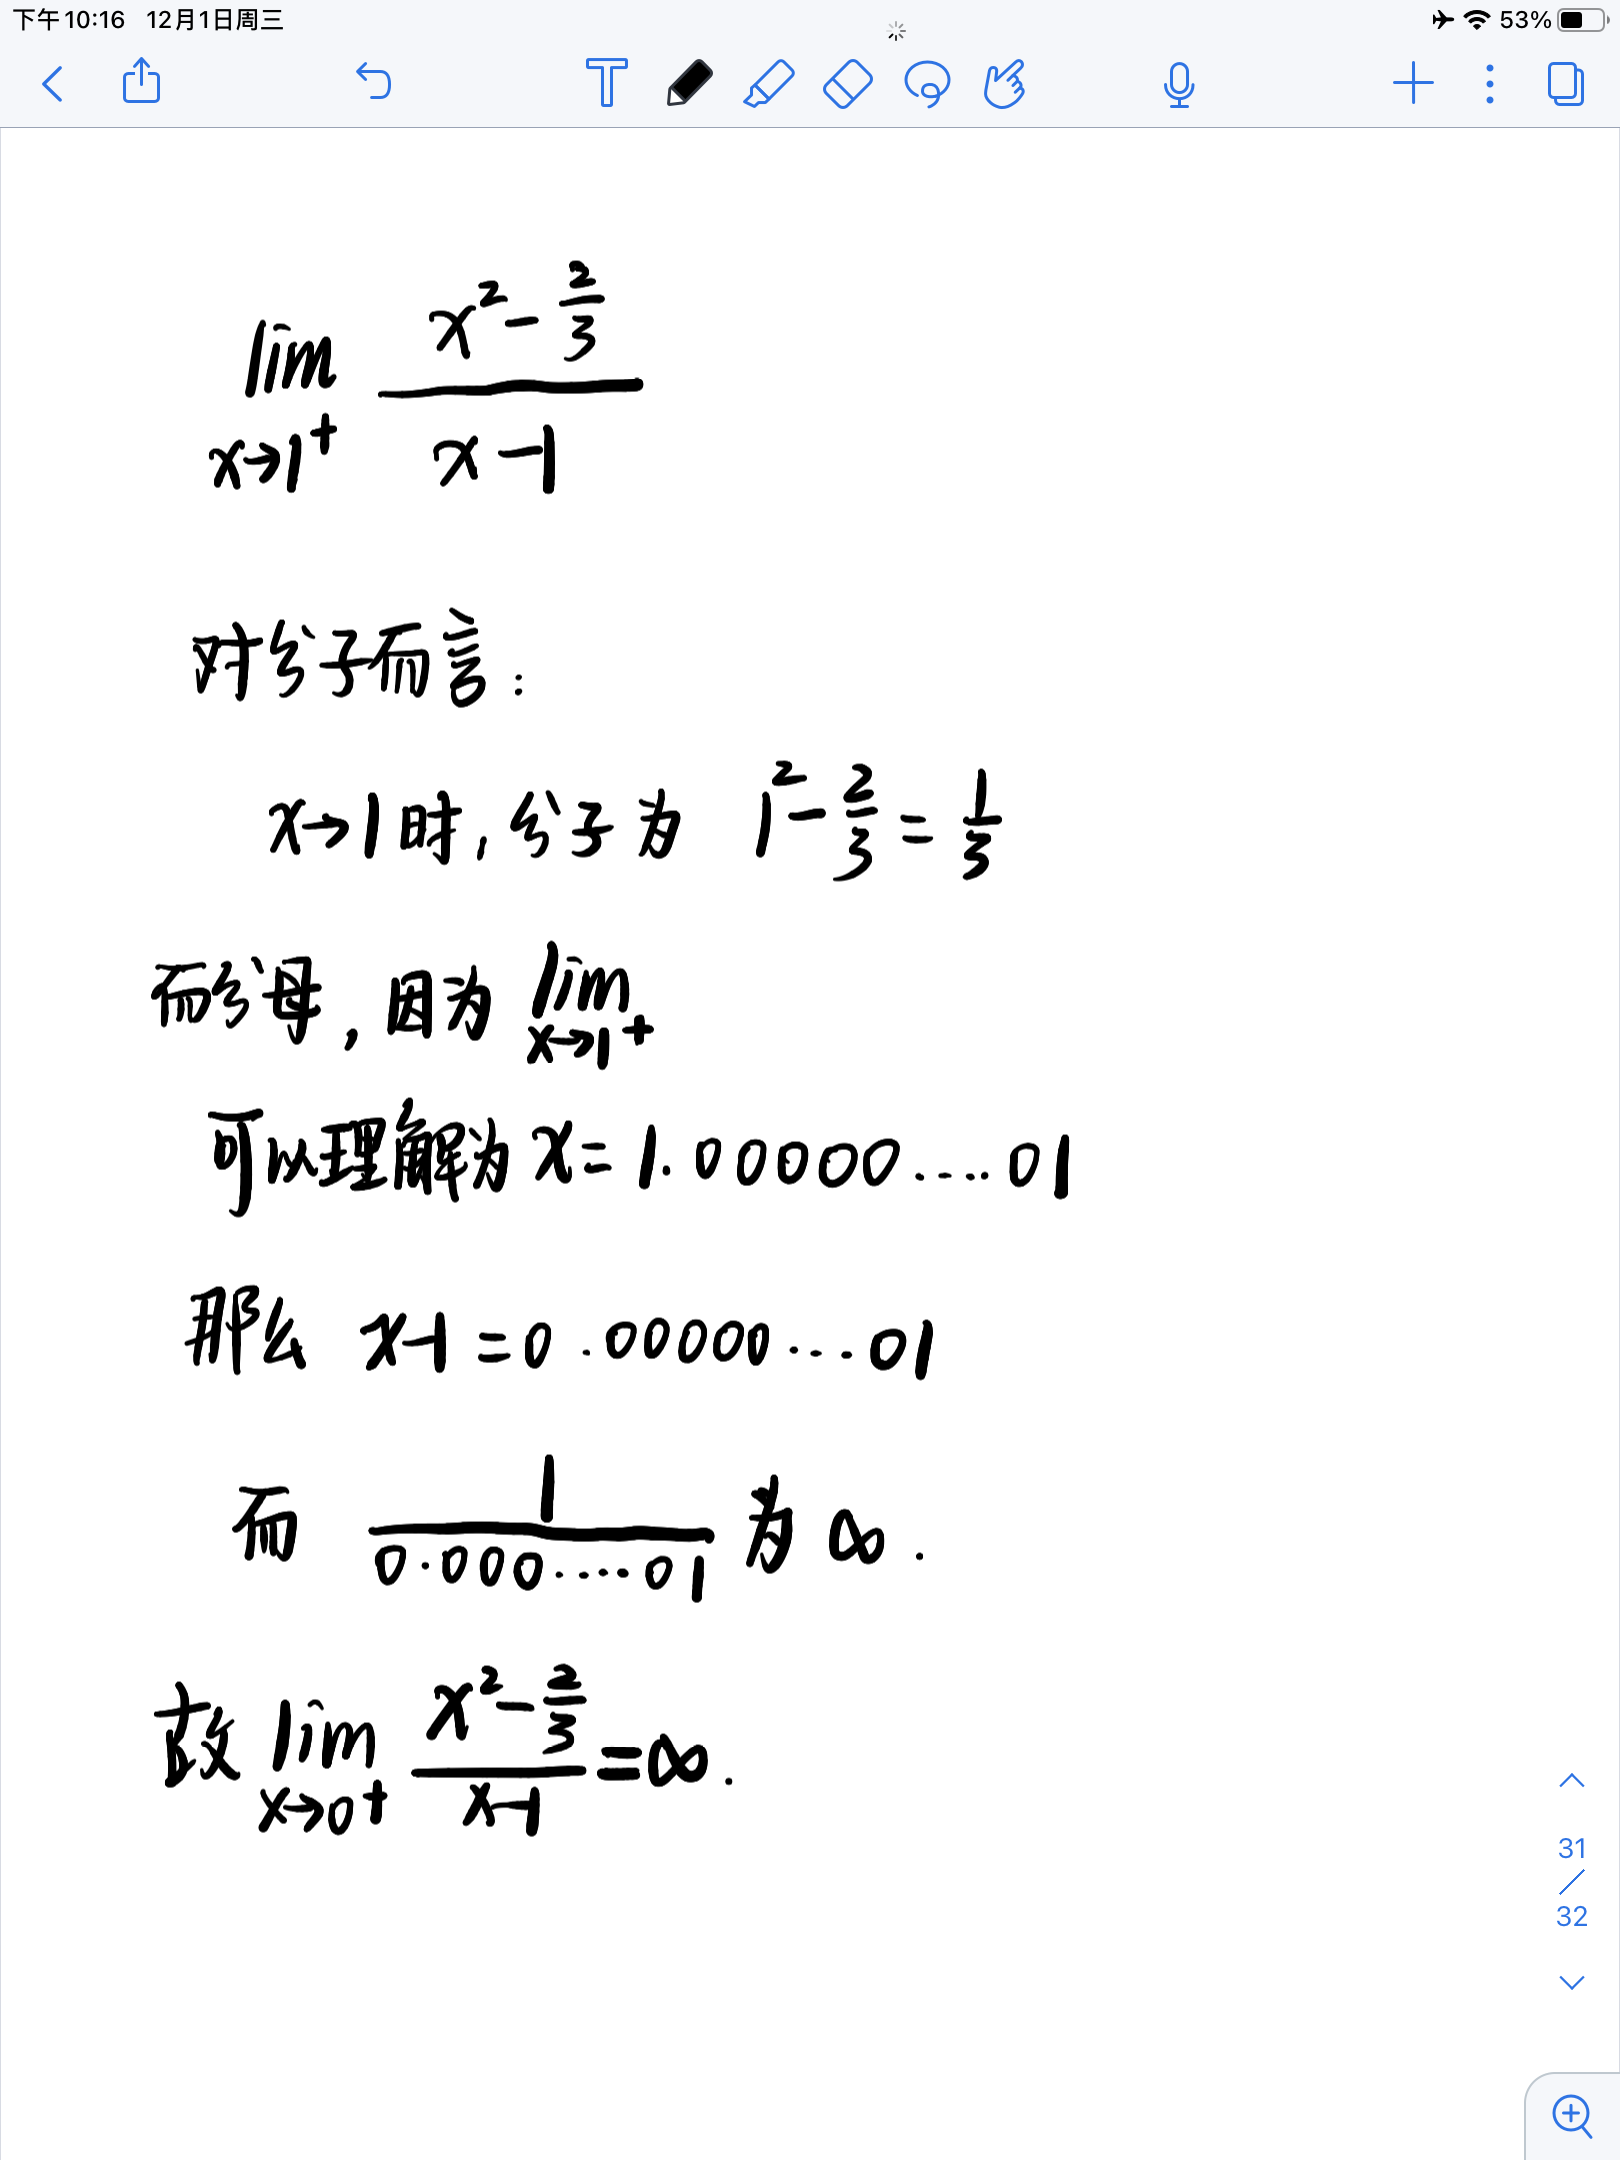 下午10:16 12月1日周三 53%
lim x→1⁺ (x² - 2/3)/(x - 1)
对分子而言:
x→1时, 分子为 1² - 2/3 = 1/3
而分母, 因为 lim x→1⁺
可以理解为 x = 1.00000....01
那么 x-1 = 0.00000...01
而 1/(0.000....01) 为 ∞.
故 lim x→0⁺ (x² - 2/3)/(x-1) = ∞.
31
/
32